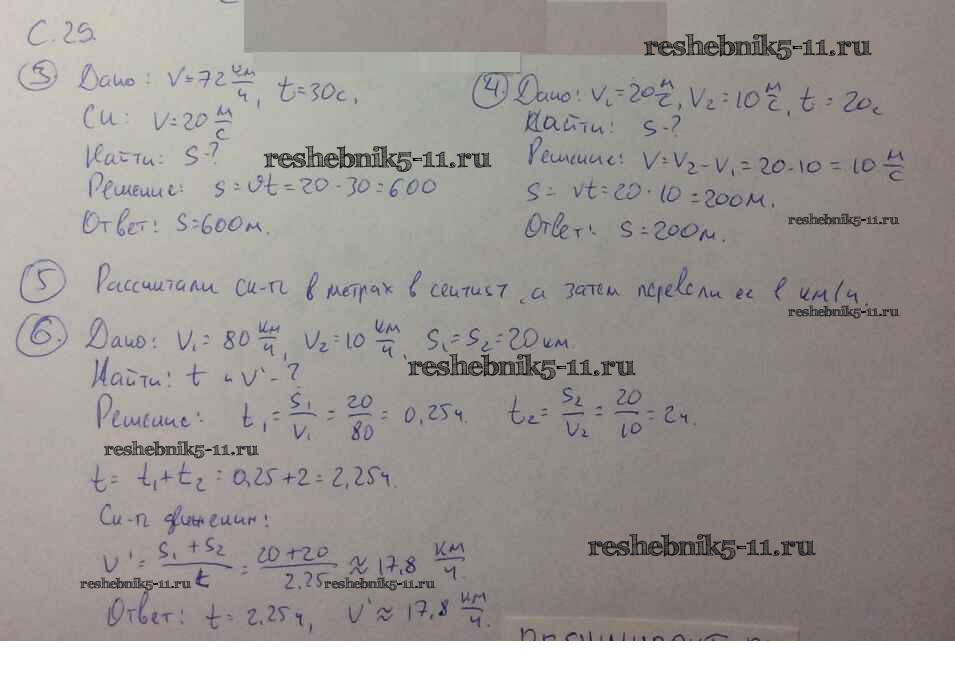 С. 29.
reshebnik5-11.ru
③ Дано: V=72 км/ч, t=30с,
Си: V=20 м/с
Найти: S-?
reshebnik5-11.ru
Решение: S=vt=20·30=600
Ответ: S=600м.
④. Дано: V₁=20 м/с, V₂=10 м/с, t=20с
Найти: S-?
Решение: V=V₂-V₁=20-10=10 м/с
S= vt=20·10=200м.
reshebnik5-11.ru
Ответ: S=200м.
⑤ Рассчитали ск-ть в метрах в
а затем перевели ее в км/ч.
reshebnik5-11.ru
⑥. Дано: V₁=80 км/ч, V₂=10 км/ч. S₁=S₂=20км.
Найти: t и V'-?
reshebnik5-11.ru
Решение: t₁= S₁/V₁ = 20/80 = 0,25ч. t₂= S₂/V₂ = 20/10 = 2ч.
reshebnik5-11.ru
t= t₁+t₂=0,25+2=2,25ч.
Ск-ть движения:
V'= S₁+S₂/t = 20+20/2.25 ≈ 17,8 км/ч.
reshebnik5-11.ru
reshebnik5-11.ru
reshebnik5-11.ru
Ответ: t=2,25ч, V'≈17,8 км/ч.